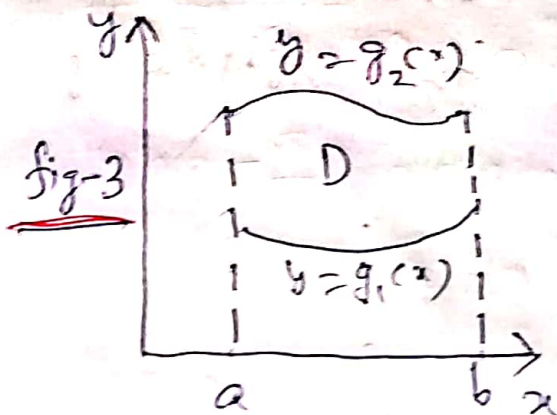 y
y = g₂(x)
fig-3
D
y = g₁(x)
a
b
x